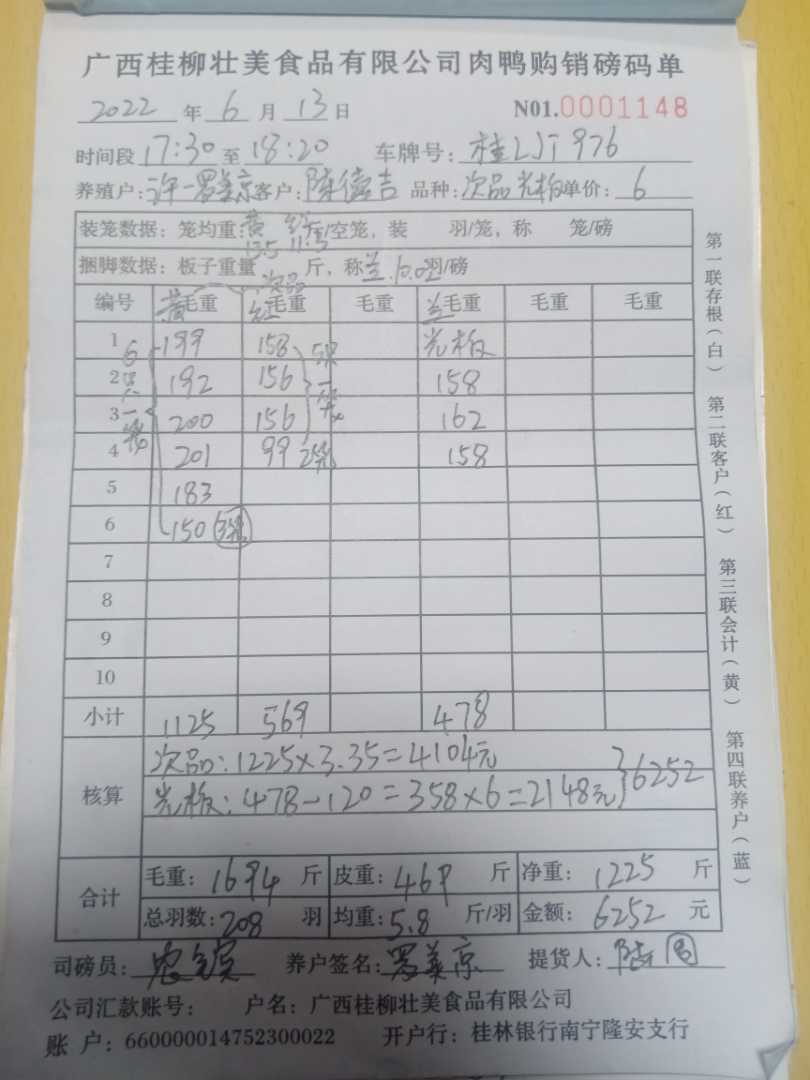 广西桂柳壮美食品有限公司肉鸭购销磅码单
2022 年 6 月 13 日 N01.0001148
时间段 17:30 至 18:20 车牌号: 桂LJT976
养殖户: 许一罗美京 客户: 陆德吉 品种: 次品光板 单价: 6
装笼数据: 笼均重: 黄 13.5 红 11.5 斤/空笼, 装 羽/笼, 称 笼/磅
捆脚数据: 板子重量 斤, 称 兰 10.0 羽/磅
次品
编号 黄毛重 红毛重 毛重 兰毛重 毛重 毛重
1 199 158 光板
2 192 156 158
3 200 156 162
4 201 99 2笼 158
5 183
6 150 3笼
6只一笼
5只一笼
7
8
9
10
小计 1125 569 478
核算 次品: 1225×3.35=4104元
光板: 478-120=358×6=2148元 }6252
合计 毛重: 1694 斤 皮重: 469 斤 净重: 1225 斤
总羽数: 208 羽 均重: 5.8 斤/羽 金额: 6252 元
司磅员: 养户签名: 罗美京 提货人: 陆
公司汇款账号: 户名: 广西桂柳壮美食品有限公司
账 户: 660000014752300022 开户行: 桂林银行南宁隆安支行
第一联存根(白) 第二联客户(红) 第三联会计(黄) 第四联养户(蓝)